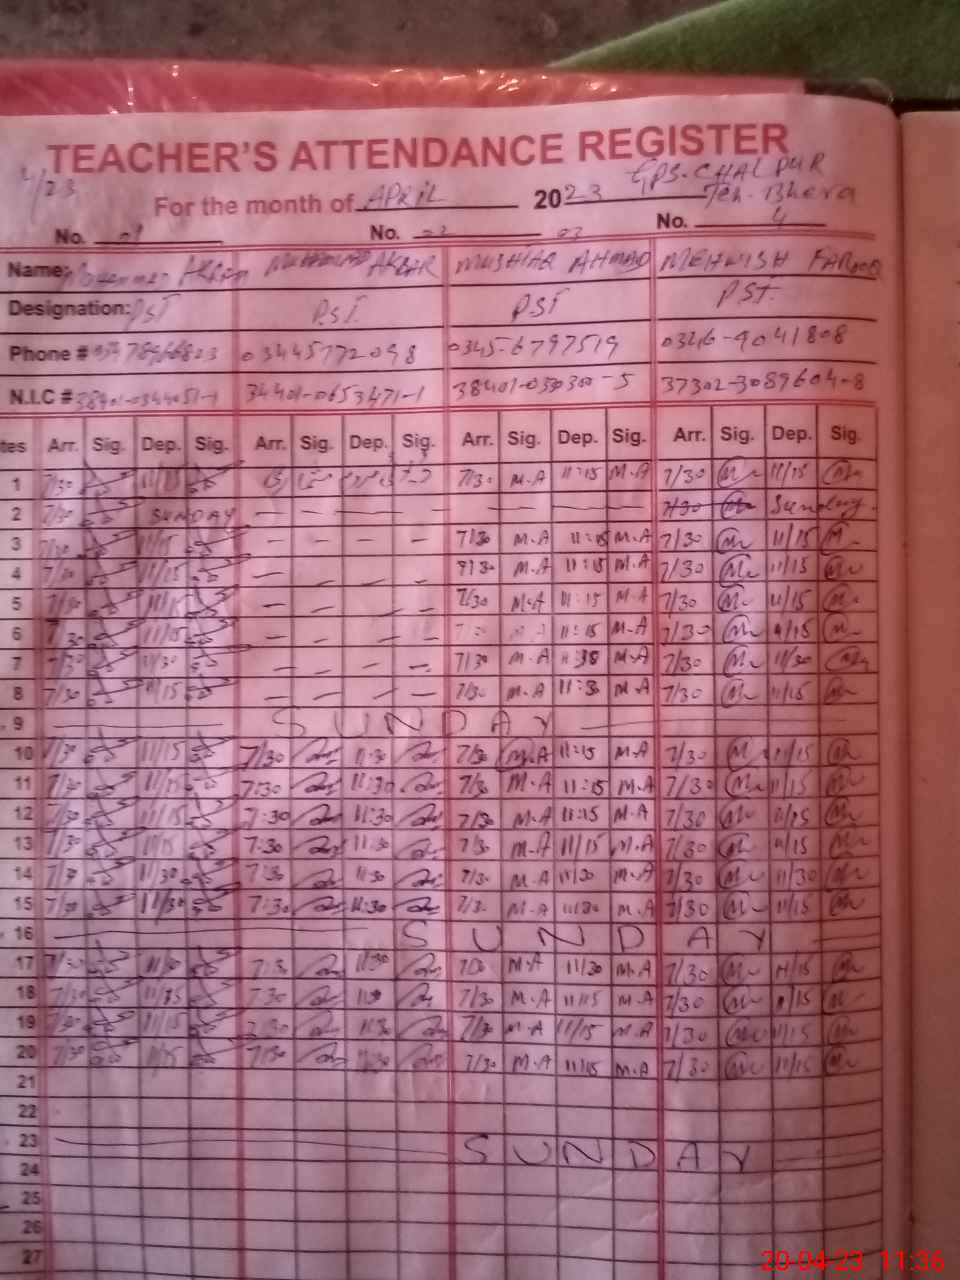 TEACHER'S ATTENDANCE REGISTER
4/23 GPS. CHAL PUR
For the month of APRIL 2023 Teh. Bhera
No. 01 No. 02 03 No. 4
Name: Mohammad AKRAM MUHAMMAD AKBAR MUSHTAQ AHMAD MEHWISH FAROOQ
Designation: PST P.S.T. P.S.T P.S.T.
Phone # 03445772098 0345-6797519 0346-9041808
N.I.C # 38401-0344051-1 34401-0653471-1 37302-3089604-8
tes Arr. Sig. Dep. Sig. Arr. Sig. Dep. Sig. Arr. Sig. Dep. Sig. Arr. Sig. Dep. Sig.
1 7/30 11/15 7/30 M.A 11:15 M.A 7/30 11/15
2 7/30 SUNDAY — — — — — — — — 7/30 Sunday.
3 7/30 11/15 — — — — 7/30 M.A 11:15 M.A 7/30 11/15
4 7/30 11/15 — — — — 7/30 M.A 11:15 M.A 7/30 11/15
5 7/30 11/15 — — — — 7/30 M.A 11:15 M.A 7/30 11/15
6 7/30 11/15 — — — — 7/30 M.A 11:15 M.A 7/30 11/15
7 7/30 11/30 — — — — 7/30 M.A 11:30 M.A 7/30 11/30
8 7/30 11/15 — — — — 7/30 M.A 11:30 M.A 7/30 11/15
9 SUNDAY
10 7/30 11/15 7/30 11:30 7/30 M.A 11:15 M.A 7/30 11/15
11 7/30 11/15 7:30 11:30 7/30 M.A 11:15 M.A 7/30 11/15
12 7/30 11/15 7:30 11:30 7/30 M.A 11:15 M.A 7/30 11/15
13 7/30 11/15 7:30 11:30 7/30 M.A 11/15 M.A 7/30 11/15
14 7/30 11/30 7:30 11:30 7/30 M.A 11/30 M.A 7/30 11/30
15 7/30 11/30 7:30 11:30 7/30 M.A 11/30 M.A 7/30 11/15
16 SUNDAY
17 7/30 11/30 7:30 11/30 7/30 M.A 11/30 M.A 7/30 11/15
18 7/30 11/15 7:30 11:30 7/30 M.A 11/15 M.A 7/30 11/15
19 7/30 11/15 7:30 11:30 7/30 M.A 11/15 M.A 7/30 11/15
20 7/30 11/15 7:30 11:30 7/30 M.A 11/15 M.A 7/30 11/15
21
22
23 SUNDAY
24
25
26
27
20-04-23 11:36